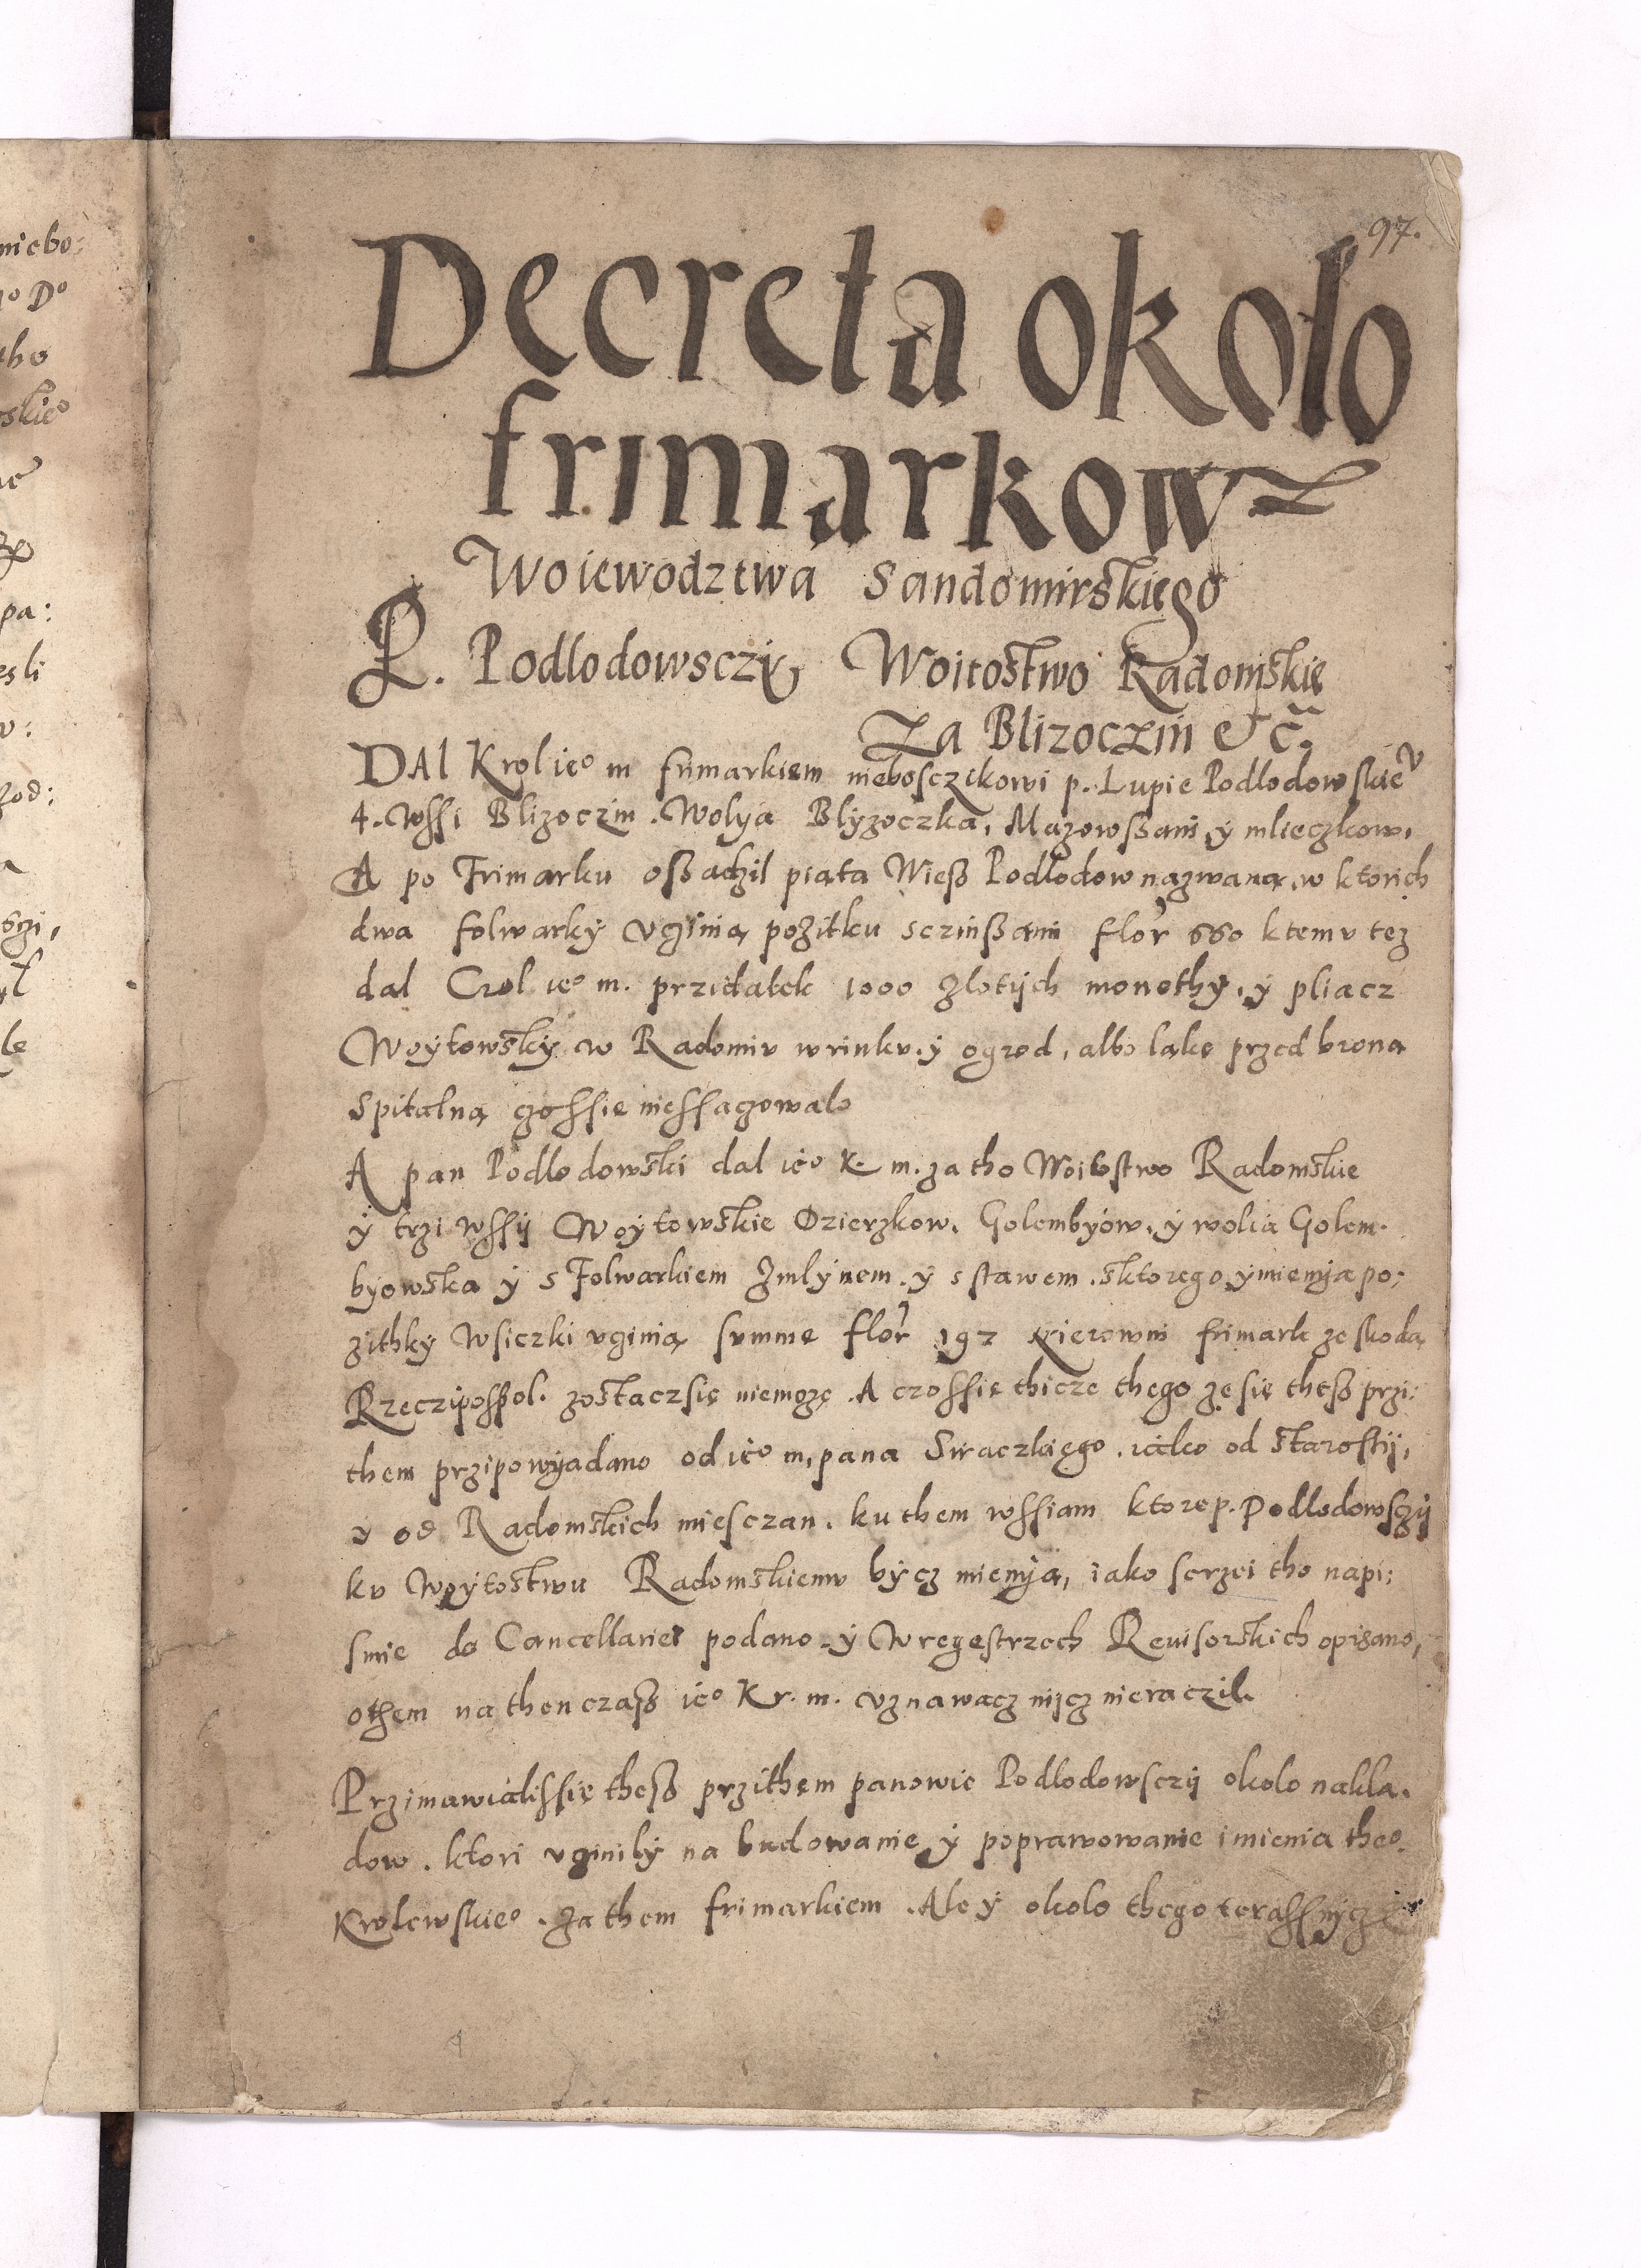 97.
Decreta około
frimarkow
Woiewodztwa Sandomirskiego
P. Podlodowsczy Woitostwo Radomskie
Za Blizoczin etc.
DAl Krol ieº m frimarkiem nieboszczikowi p. Lupie Podlodowskieᵛ
4. wssi Blizoczin. Wolya Blyzoczka, Mazowßani, ÿ mlieczkow,
A po Frimarku oßadzil piata Wieß Podlodow nazwaną, w ktorich
dwa folwarkÿ vczinią pozitku sczinßami flor 660 ktemv tez
dal Crol ieº m. przidatek 1000 zlotÿch monethÿ, ÿ pliacz
Woÿtowskÿ w Radomiv w rinkv, ÿ ogrod, albo ląke przed brona
Spitalną czossie niessaczowalo
A pan Podlodowski dal ieº K. m. za tho Woitostwo Radomskie
ÿ trzi wssÿ Woÿtowskie Dzierzkow, Golembyow, ÿ wolia Golem-
byowska ÿ s Folwarkiem Zmlÿnem. ÿ s stawem. sktorego ÿmienia po:
zithkÿ Wsiczki vczinią summe flor 192 kierowni frimark ze skodą
Rzeczipospol. zostaczsię niemoze. A czossie thicze thego ze sie theß przi:
them przipowÿadano od ieº m. pana Siraczkiego. iáko od starostÿ,
ÿ od Radomskich miesczan. ku them wssiam ktore p. Podlodowsczÿ
kv Woÿtostwu Radomskiemv bÿcz mienÿa, iako serzei tho napi:
smie do Cancellariei podano. ÿ W regestrzech Reuisorskich opisano,
othem na then czaß ieº Kr. m. vznawacz nijcz nieraczil.
Przimawialissie theß przithem panowie Podlodowsczÿ okolo nakla-
dow. ktori vczinilÿ na budowanie ÿ poprawowanie imienia theº
Krolewskieº. za them frimarkiem. Ale ÿ okolo thego terassnÿcz